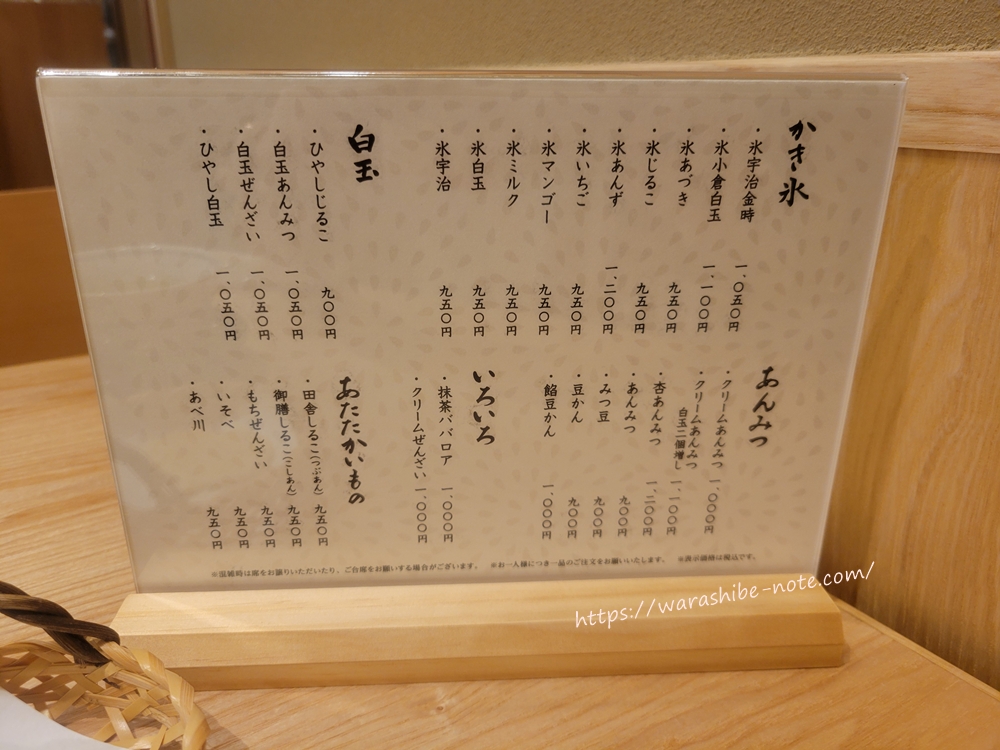 かき氷
・氷宇治金時 一、〇五〇円
・氷小倉白玉 一、一〇〇円
・氷あづき 九五〇円
・氷じるこ 九五〇円
・氷あんず 一、二〇〇円
・氷いちご 九五〇円
・氷マンゴー 九五〇円
・氷ミルク 九五〇円
・氷白玉 九五〇円
・氷宇治 九五〇円
白玉
・ひやしじるこ 九〇〇円
・白玉あんみつ 一、〇五〇円
・白玉ぜんざい 一、〇五〇円
・ひやし白玉 一、〇五〇円
あんみつ
・クリームあんみつ 一、〇〇〇円
・クリームあんみつ
白玉二個増し 一、一〇〇円
・杏あんみつ 一、二〇〇円
・あんみつ 九〇〇円
・みつ豆 九〇〇円
・豆かん 九〇〇円
・餡豆かん 一、〇〇〇円
いろいろ
・抹茶ババロア 一、〇〇〇円
・クリームぜんざい 一、〇〇〇円
あたたかいもの
・田舎しるこ(つぶあん) 九五〇円
・御膳しるこ(こしあん) 九五〇円
・もちぜんざい 九五〇円
・いそべ 九五〇円
・あべ川 九五〇円
※混雑時は席をお譲りいただいたり、ご相席をお願いする場合がございます。 ※お一人様につき一品のご注文をお願いいたします。 ※表示価格は税込です。
https://warashibe-note.com/